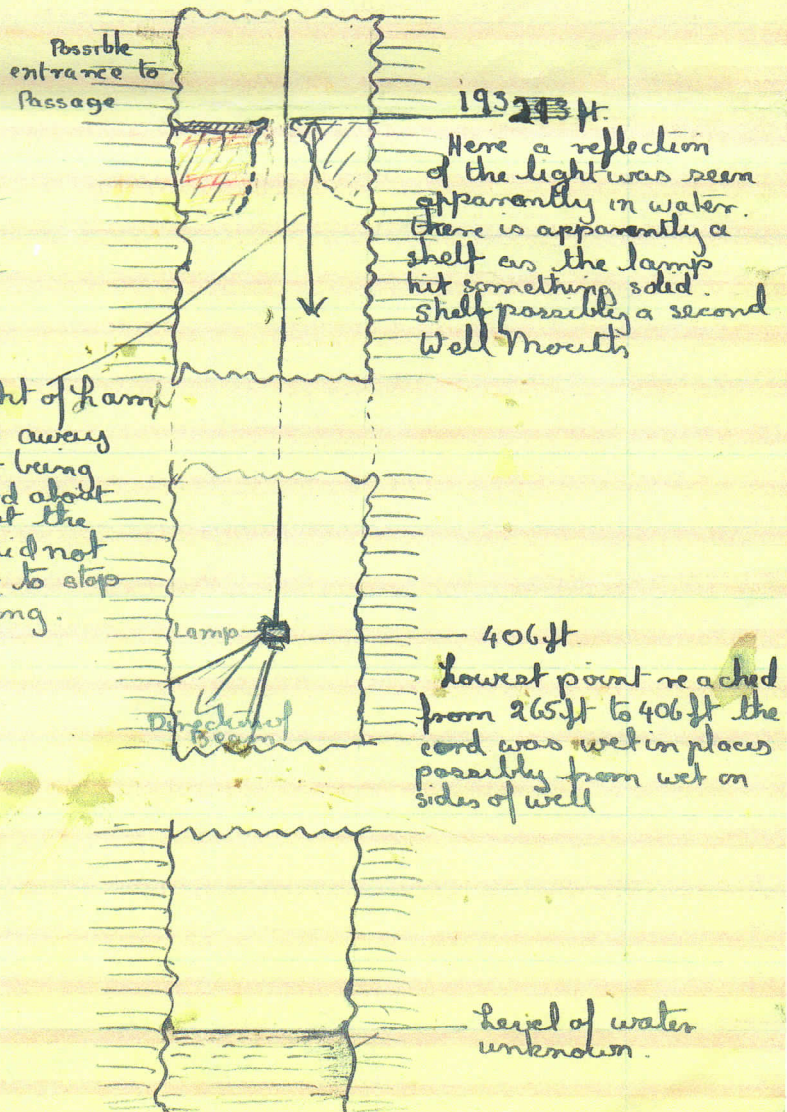 Possible
entrance to
Passage
193 ft.
Here a reflection
of the light was seen
apparantly in water.
there is apparently a
shelf as the lamp
hit something solid.
Shelf possibly a second
Well Mouth
ht of Lamp
away
being
d about
t the
did not
to stop
ng
Lamp
Direction of
Beam
406 ft
Lowest point reached
from 265 ft to 406 ft the
cord was wet in places
possibly from wet on
sides of well
Level of water
unknown.